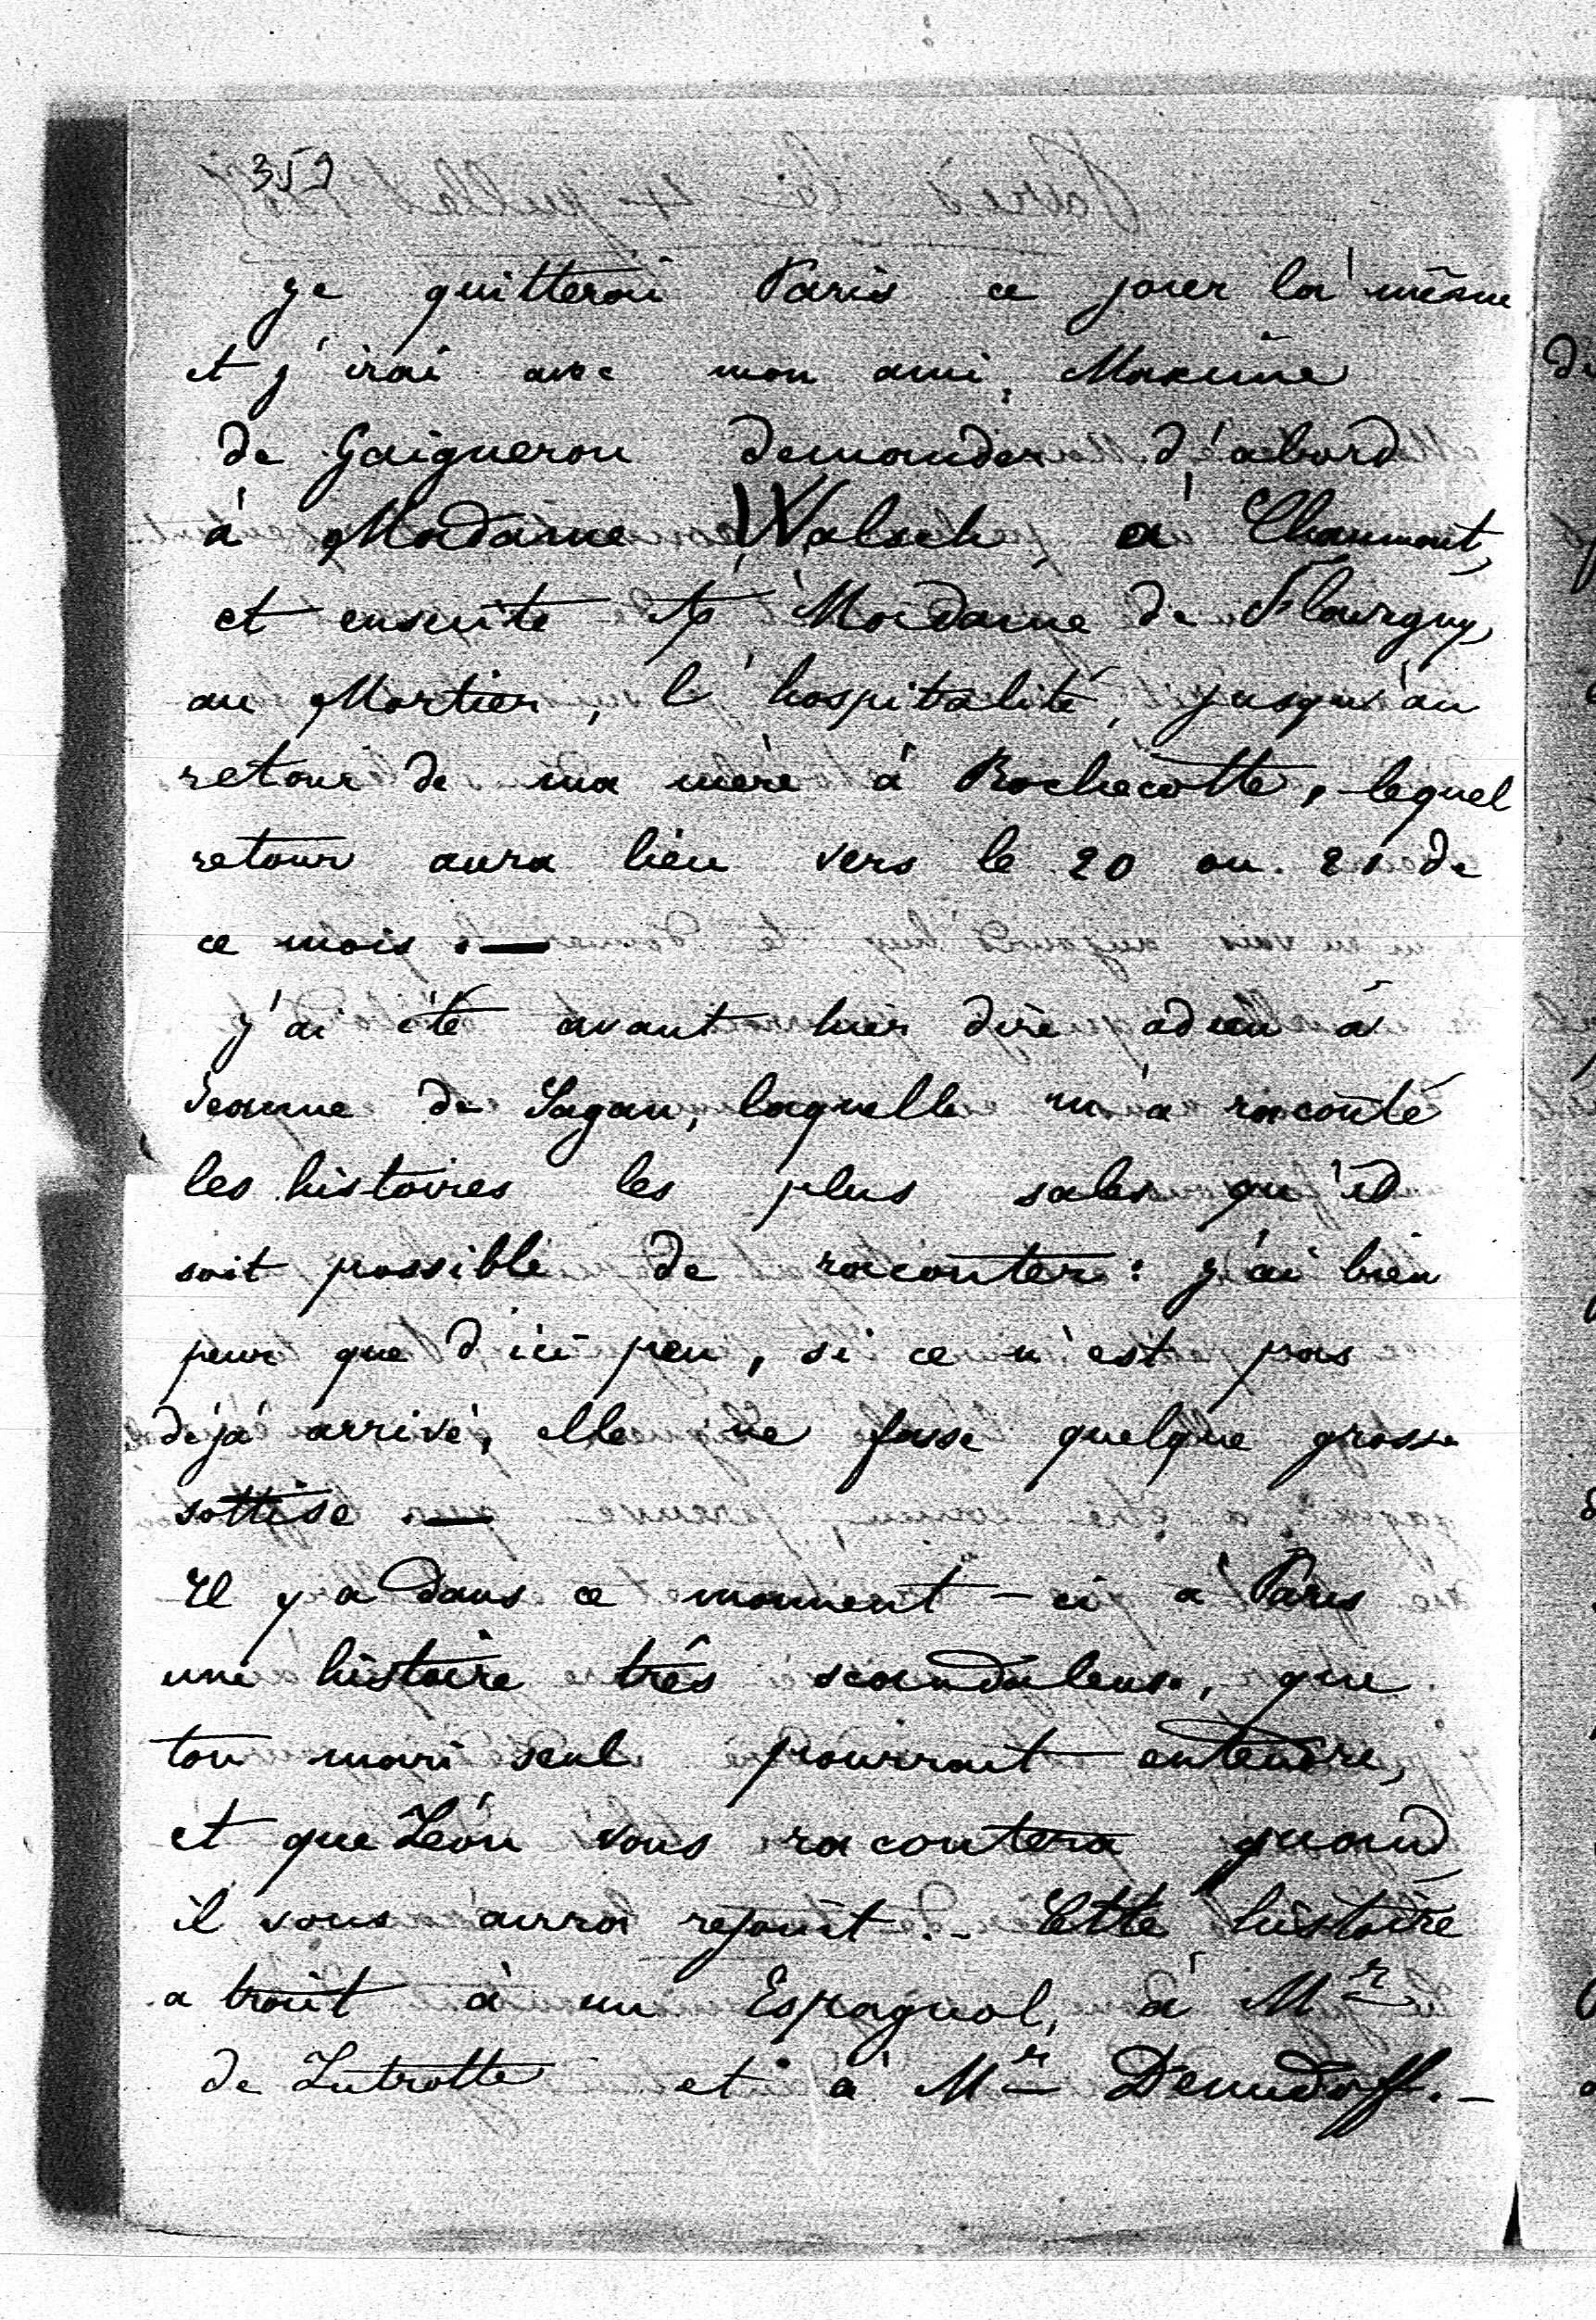 352
je quitterai Paris ce jour là même
et j'irai avec mon ami, Maxime
de Gaigneron demander d'abord
à Madame Walsch à Chaumont,
et ensuite à Madame de Flavigny,
au Mortier, l'hospitalité, jusqu'au
retour de ma mère à Rochecotte, lequel
retour aura lieu vers le 20 ou 21 de
ce mois. —
j'ai été avant hier dire adieu à
Jeanne de Sagan, laquelle m'a raconté
les histoires les plus sales qu'il
soit possible de raconter : j'ai bien
peur que d'ici peu, si ce n'est pas
déjà arrivé, elle ne fasse quelque grosse
sottise. —
Il y a dans ce moment-ci à Paris
une histoire très scandaleuse, que
ton mari seul pourrait entendre,
et que Léon vous racontera quand
il vous aura rejoint. - Cette histoire
a trait à un Espagnol, à Mr
de Lutrotte et à Mr Demidoff. -